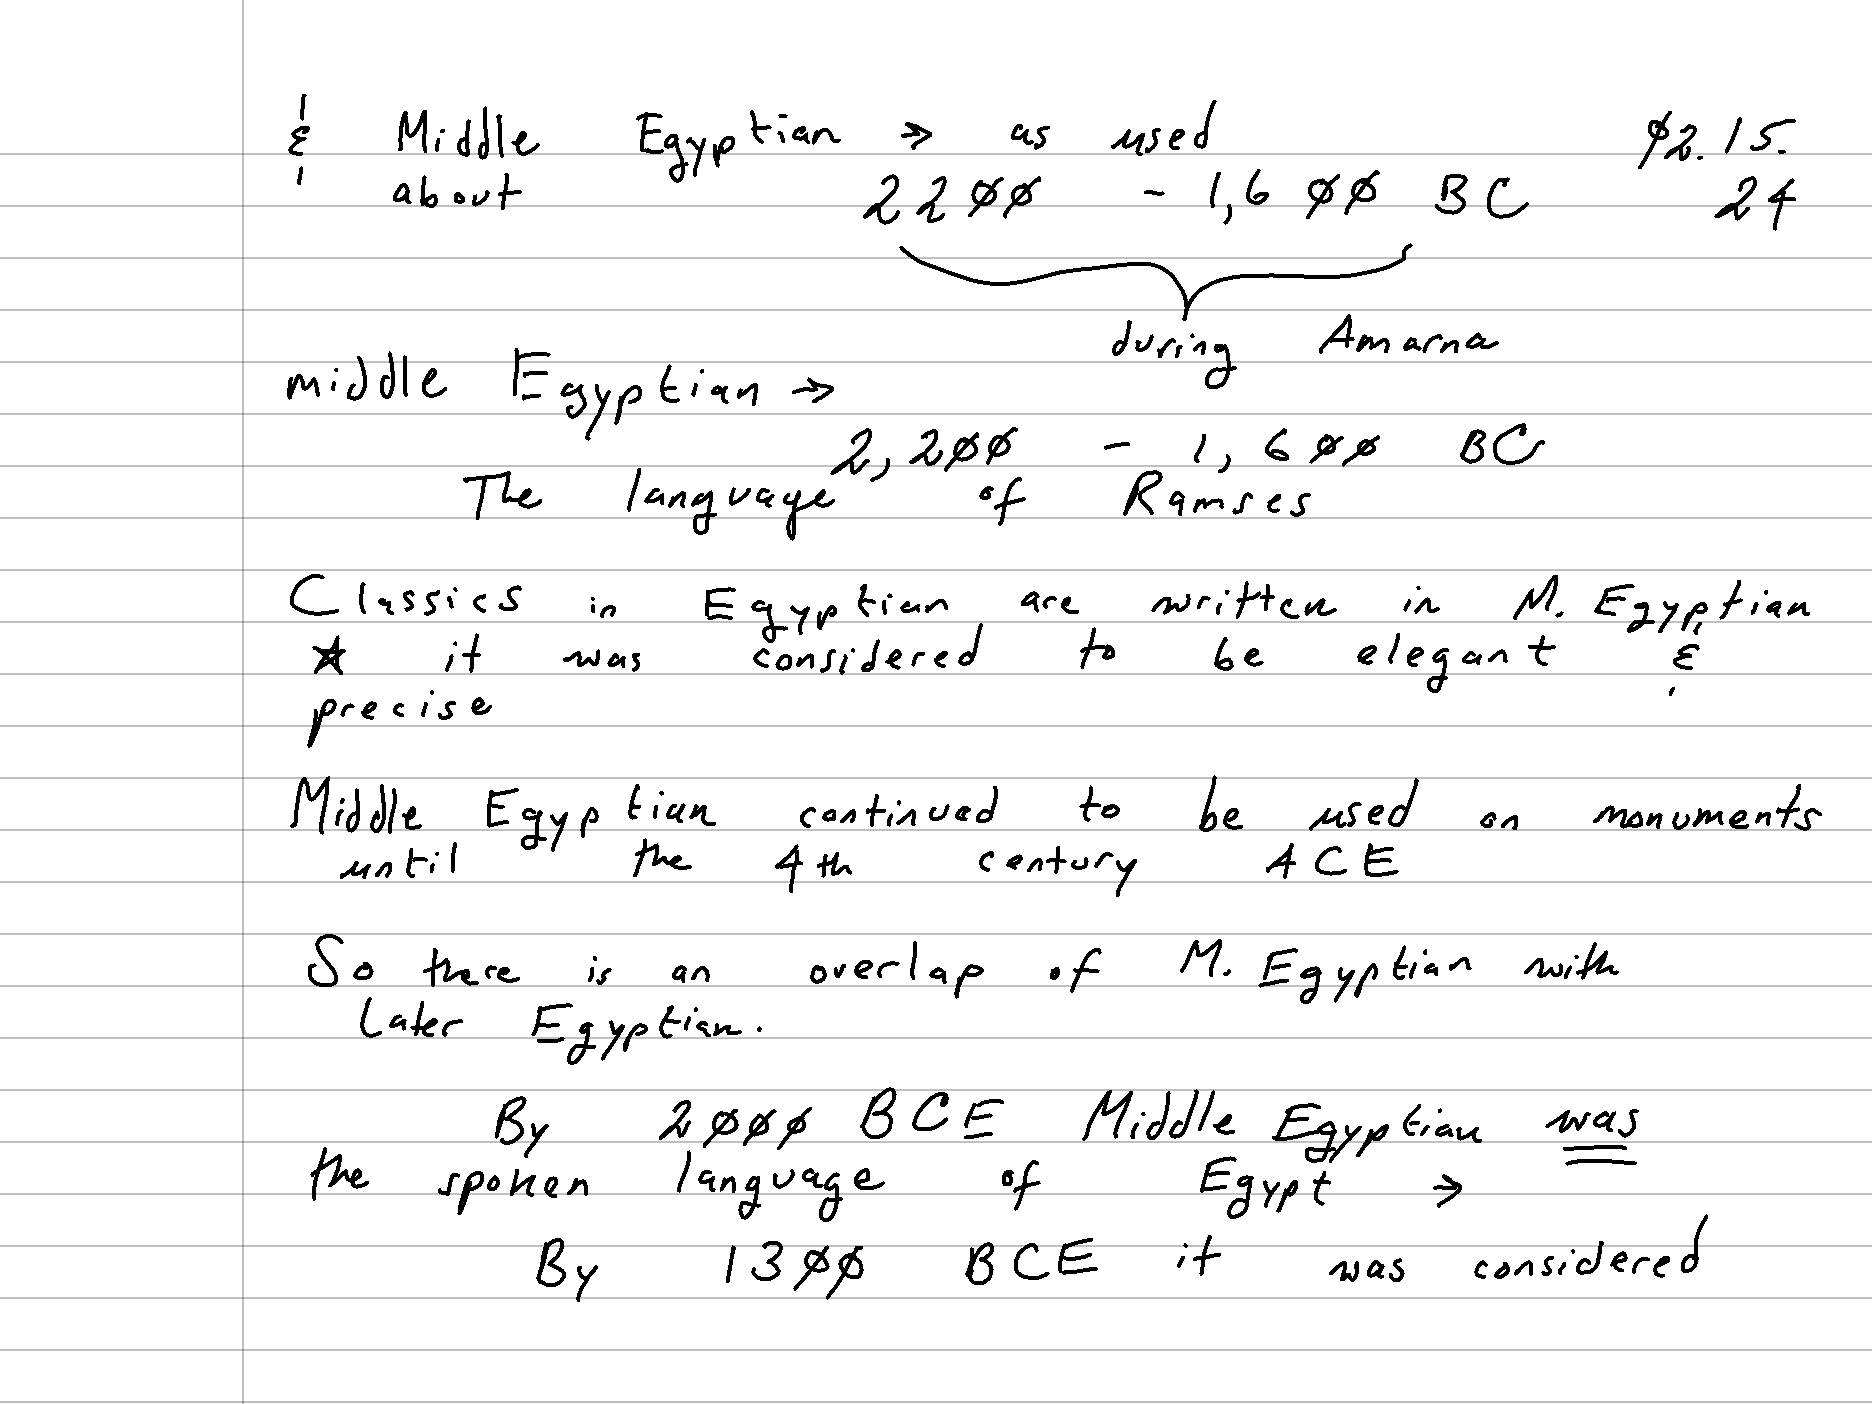 & Middle Egyptian → as used $2.15.
about 2200 - 1,600 BC 24
during Amarna
middle Egyptian →
2,200 - 1,600 BC
The language of Ramses
Classics in Egyptian are written in M. Egyptian
☆ it was considered to be elegant &
precise
Middle Egyptian continued to be used on monuments
until the 4th century ACE
So there is an overlap of M. Egyptian with
Later Egyptian.
By 2000 BCE Middle Egyptian was
the spoken language of Egypt →
By 1300 BCE it was considered